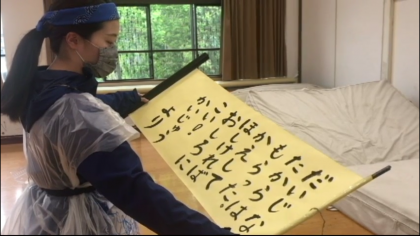 だいじな
たからは
もらった
かえして
ほしければ
おしろに
こい。
かいじゅう
より